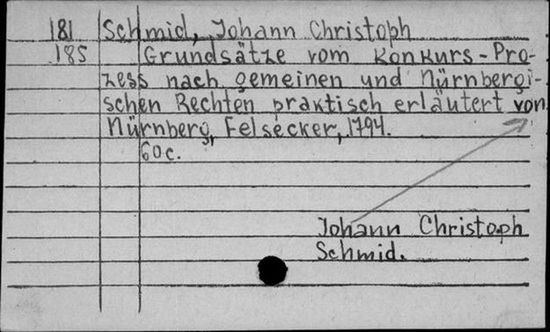 181 Schmid, Johann Christoph
185 Grundsätze vom Konkurs-Pro-
zess nach gemeinen und Nürnbergi-
schen Rechten praktisch erläutert von
Nürnberg, Felsecker, 1794.
60c.
Johann Christoph
Schmid.